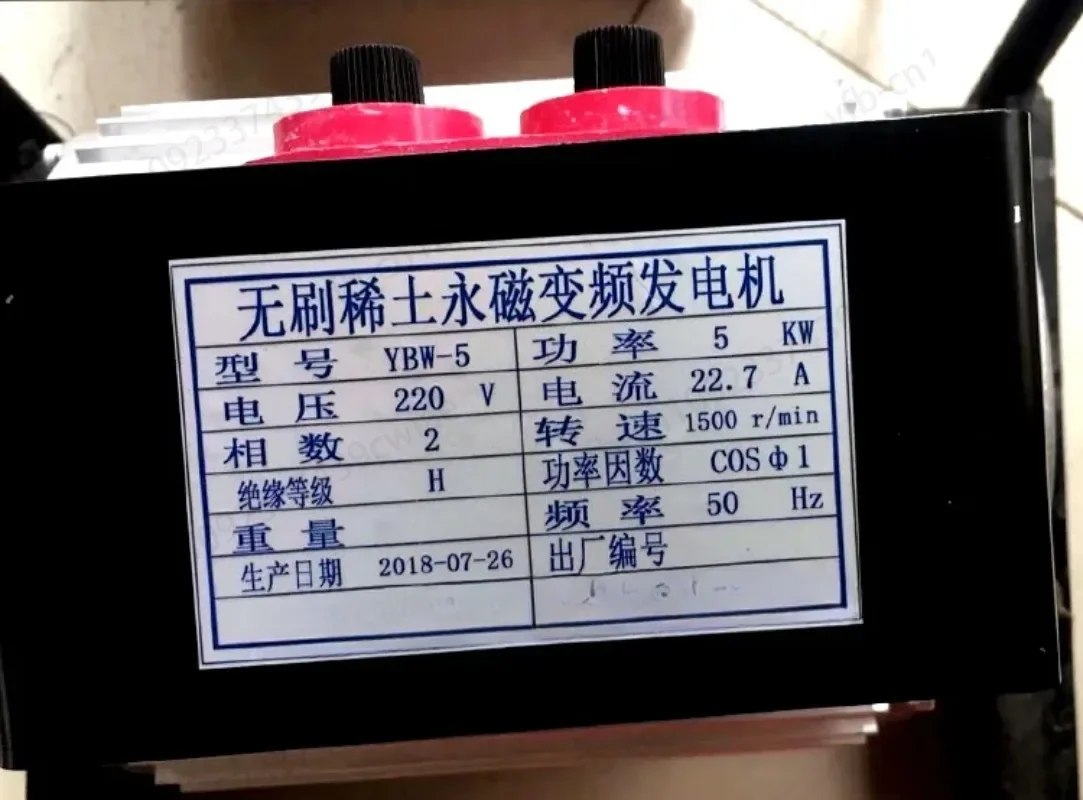 无刷稀土永磁变频发电机
型号 YBW-5 功率 5 KW
电压 220 V 电流 22.7 A
相数 2 转速 1500 r/min
绝缘等级 H 功率因数 COSΦ1
重量 频率 50 Hz
生产日期 2018-07-26 出厂编号